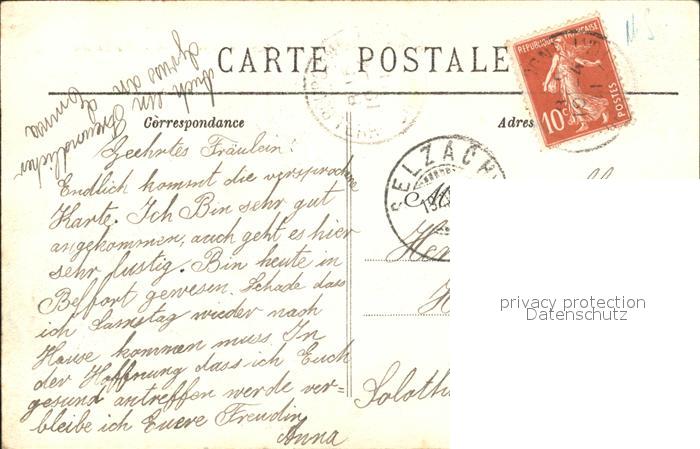 CARTE POSTALE
Correspondance
Adres
Auch ein
freundlicher
Gruss an
Emma
Geehrtes Fräulein!
Endlich kommt die versprochne
Karte. Ich Bin sehr gut
angekommen, auch geht es hier
sehr lustig. Bin heute in
Belfort gewesen. Schade dass
ich Samstag wieder nach
Hause kommen muss. In
der Hoffnung dass ich Euch
gesund antreffen werde ver=
bleibe ich Euere Freundin
Anna
REPUBLIQUE FRANÇAISE
POSTES
10c
SELZACH
Solothu
privacy protection
Datenschutz